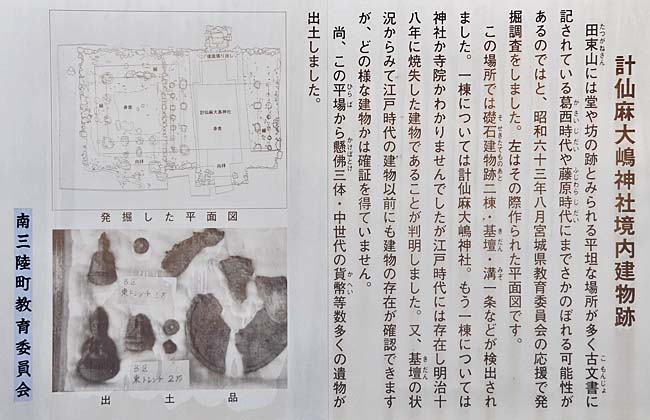 計仙麻大嶋神社境内建物跡
田束山には堂や坊の跡とみられる平坦な場所が多く古文書に
記されている葛西時代や藤原時代にまでさかのぼれる可能性が
あるのではと、昭和六十三年八月宮城県教育委員会の応援で発
掘調査をしました。左はその際作られた平面図です。
この場所では礎石建物跡二棟・基壇・溝一条などが検出され
ました。一棟については計仙麻大嶋神社。もう一棟については
神社か寺院かわかりませんでしたが江戸時代には存在し明治十
八年に焼失した建物であることが判明しました。又、基壇の状
況からみて江戸時代の建物以前にも建物の存在が確認できます
が、どの様な建物かは確証を得ていません。
尚、この平場から懸佛三体・中世代の貨幣等数多くの遺物が
出土しました。
計仙麻大嶋神社
身舎
向拝
身舎
向拝
発掘した平面図
B区
東トレンチ 2方
B区
東トレンチ 2方
出土品
南三陸町教育委員会